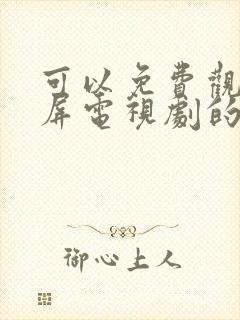 可以免費觀
屏電視劇的
御心上人